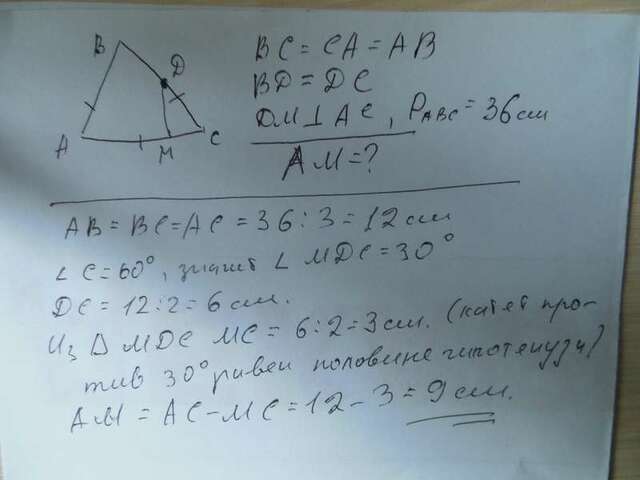 B
D
A
M
C
BC = CA = AB
BD = DC
DM ⊥ AC, P ABC = 36 см
AM = ?
AB = BC = AC = 36 : 3 = 12 см
∠ C = 60°, значит ∠ MDC = 30°
DC = 12 : 2 = 6 см.
Из Δ MDC MC = 6 : 2 = 3 см. (катет про-
тив 30° равен половине гипотенузы)
AM = AC - MC = 12 - 3 = 9 см.